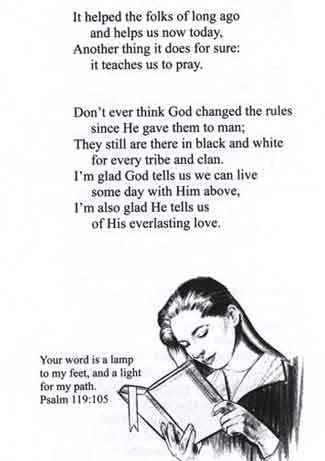 It helped the folks of long ago
and helps us now today,
Another thing it does for sure:
it teaches us to pray.
Don't ever think God changed the rules
since He gave them to man;
They still are there in black and white
for every tribe and clan.
I'm glad God tells us we can live
some day with Him above,
I'm also glad He tells us
of His everlasting love.
Your word is a lamp
to my feet, and a light
for my path.
Psalm 119:105